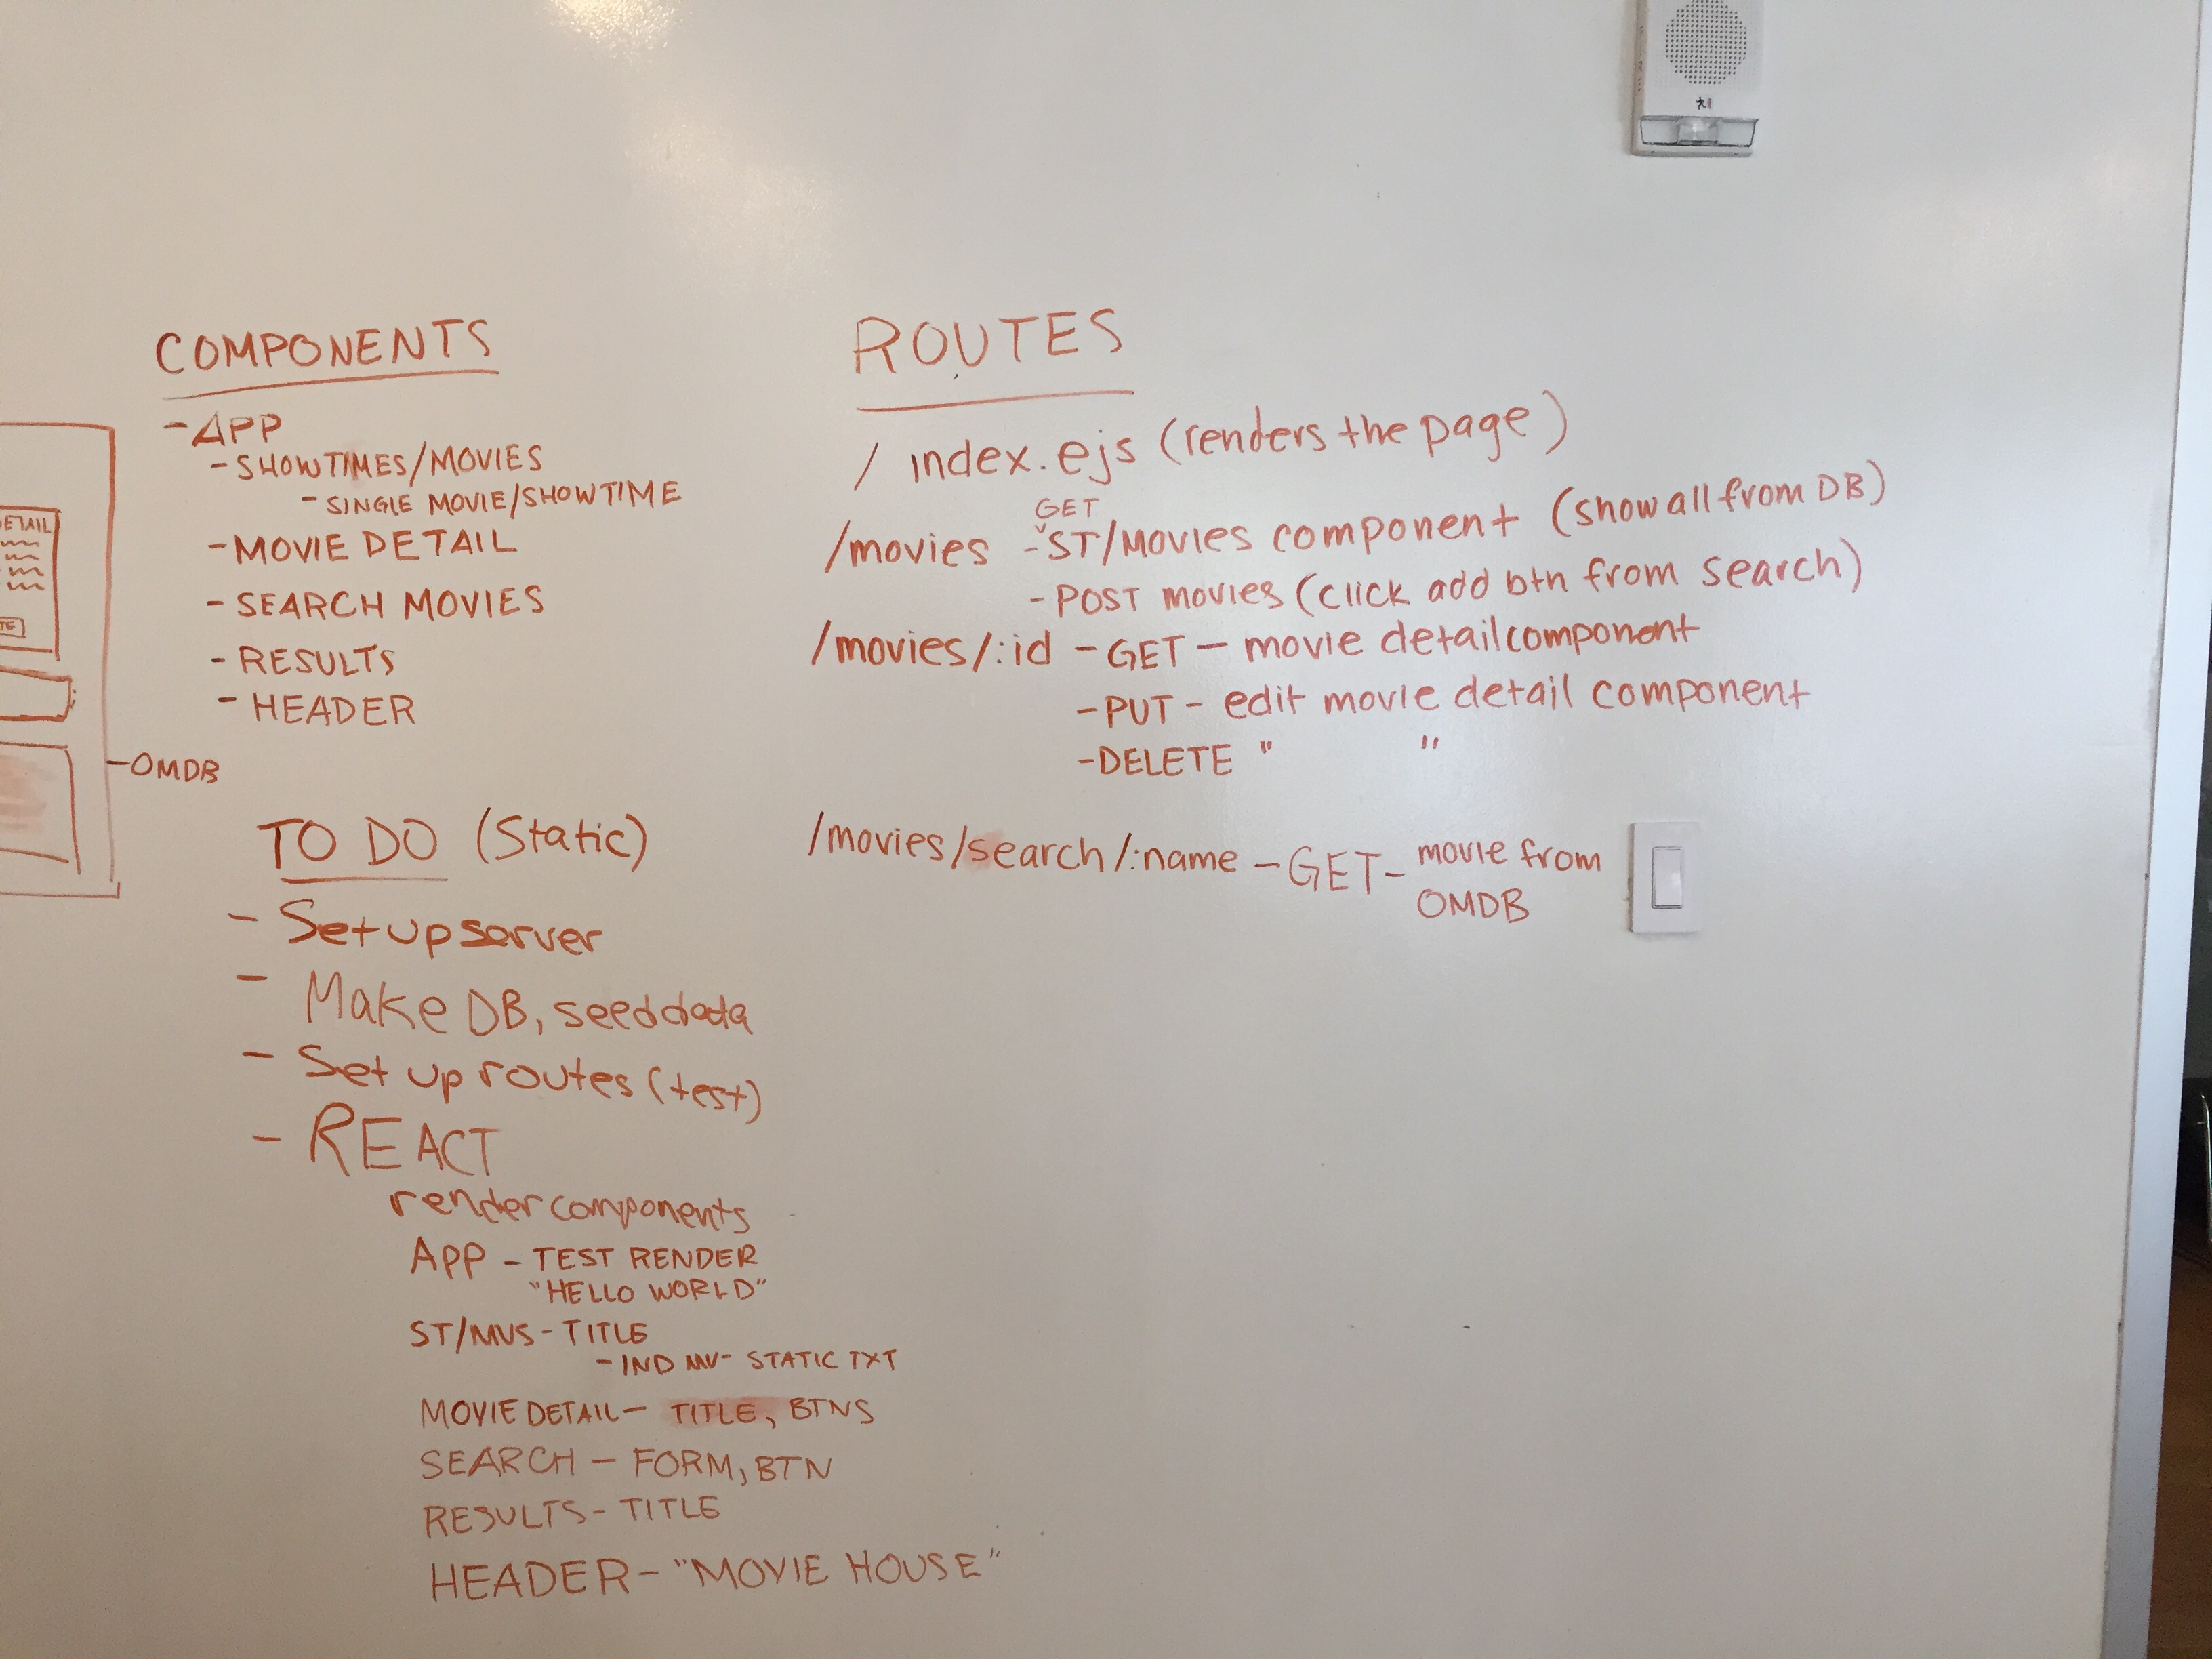 COMPONENTS
- APP
- SHOWTIMES/MOVIES
- SINGLE MOVIE/SHOWTIME
- MOVIE DETAIL
- SEARCH MOVIES
- RESULTS
- HEADER
ETAIL
TE
- OMDB
TO DO (Static)
- Set up server
- Make DB, seed data
- Set up routes (test)
- REACT
render components
APP - TEST RENDER
"HELLO WORLD"
ST/MVS - TITLE
- IND MV - STATIC TXT
MOVIE DETAIL - TITLE, BTNS
SEARCH - FORM, BTN
RESULTS - TITLE
HEADER - "MOVIE HOUSE"
ROUTES
/ index.ejs (renders the page)
GET
/movies - ST/MOVIES component (show all from DB)
- POST movies (click add btn from search)
/movies/:id - GET - movie detail component
- PUT - edit movie detail component
- DELETE " "
/movies/search/:name - GET - movie from
OMDB